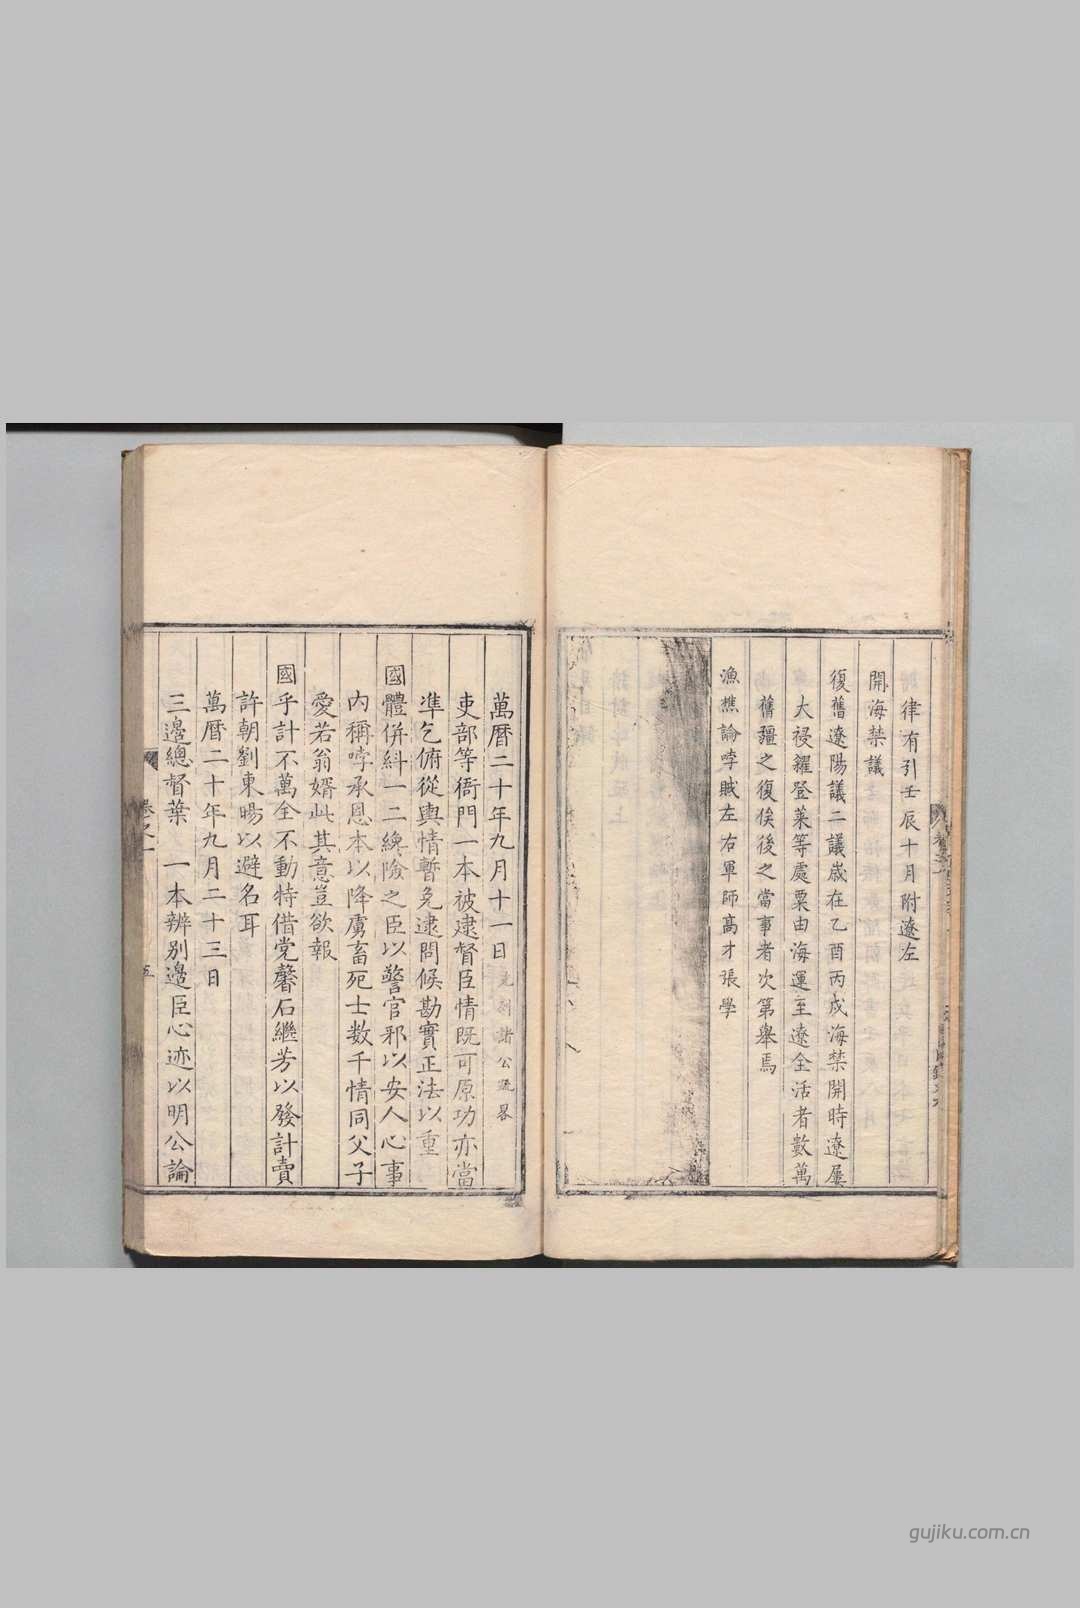 律有引壬辰十月附遼左
開海禁議
復舊遼陽議二議歲在乙酉丙戌海禁開時遼屢
大祲糴登萊等處粟由海運至遼全活者數萬
舊疆之復俟後之當事者次第舉焉
漁樵論哱賊左右軍師高才張學
萬曆二十年九月十一日
諸公疏畧
吏部等衙門一本被逮督臣情既可原功亦當
準乞俯從輿情暫免逮問候勘實正法以重
國體併糾一二纔險之臣以警官邪以安人心事
內稱哱承恩本以降虜畜死士數千情同父子
愛若翁婿此其意豈欲報
國乎計不萬全不動特借党馨石繼芳以發計賣
許朝劉東暘以避名耳
萬曆二十年九月二十三日
三邊總督葉 一本辨別邊臣心迹以明公論
卷之一
五
gujiku.com.cn